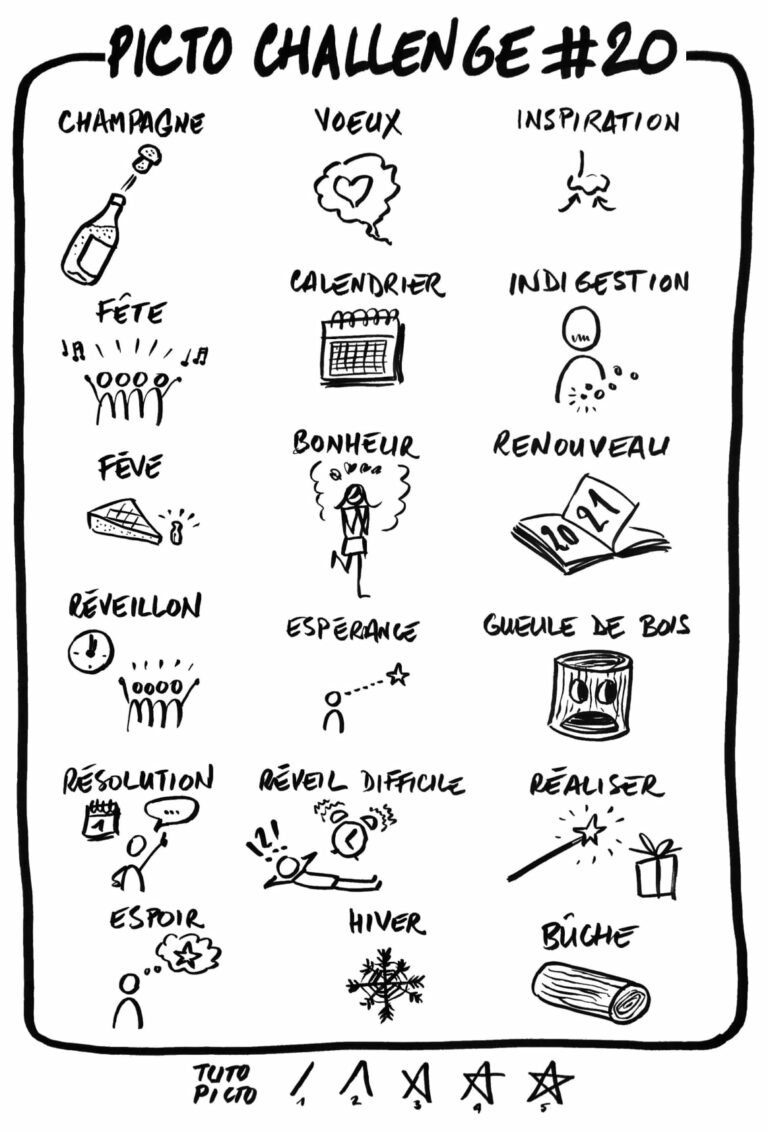 PICTO CHALLENGE #20
CHAMPAGNE
VOEUX
INSPIRATION
FÊTE
CALENDRIER
INDIGESTION
FÉVÉ
BONHEUR
RENOUVEAU
20 21
RÉVEILLON
ESPÉRANCE
GUEULE DE BOIS
RÉSOLUTION
1
...
RÉVEIL DIFFICILE
!?!
RÉALISER
ESPOIR
HIVER
BÛCHE
TUTO
PICTO
1 2 3 4 5